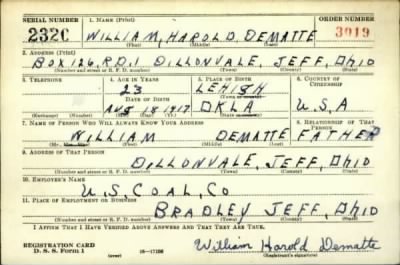 SERIAL NUMBER 1. NAME (Print) ORDER NUMBER
232C WILLIAM, HAROLD, DEMATTE 3019
(First) (Middle) (Last)
2. ADDRESS (Print)
BOX 126, R.D.1 DILLONVALE, JEFF, OHIO
(Number and street or R. F. D. number) (Town) (County) (State)
3. TELEPHONE 4. AGE IN YEARS 5. PLACE OF BIRTH 6. COUNTRY OF CITIZENSHIP
23 LEHIGH
DATE OF BIRTH (Town or county)
AUG 18 1917 OKLA U.S.A
(Exchange) (Number) (Mo.) (Day) (Yr.) (State or country)
7. NAME OF PERSON WHO WILL ALWAYS KNOW YOUR ADDRESS 8. RELATIONSHIP OF THAT PERSON
WILLIAM DEMATTE FATHER
(Mr., Mrs., Miss) (First) (Middle) (Last)
9. ADDRESS OF THAT PERSON
DILLONVALE, JEFF, OHIO
(Number and street or R. F. D. number) (Town) (County) (State)
10. EMPLOYER'S NAME
U.S. COAL, CO
11. PLACE OF EMPLOYMENT OR BUSINESS
BRADLEY JEFF, OHIO
(Number and street or R. F. D. number) (Town) (County) (State)
I AFFIRM THAT I HAVE VERIFIED ABOVE ANSWERS AND THAT THEY ARE TRUE.
REGISTRATION CARD
D. S. S. Form 1 (over) 16—17106 William Harold Dematte
(Registrant's signature)